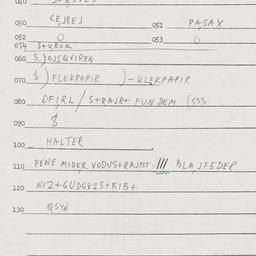 050 CEJREJ 051 PASAX
052 O 053 O
054 S+YRUK
060 $ ) OJSQVIREN
070 $ ) FLEKPAPIR ) - KLEKPAPIR
080 OFIRL / S+RAJB+ FUNDEM (553
090 $
100 HALTER
110 PENE MIDER VODUS+RAJPST /// BLAJFEDEP
120 NIZ+GUDG81S+RIB+
130 QSYN